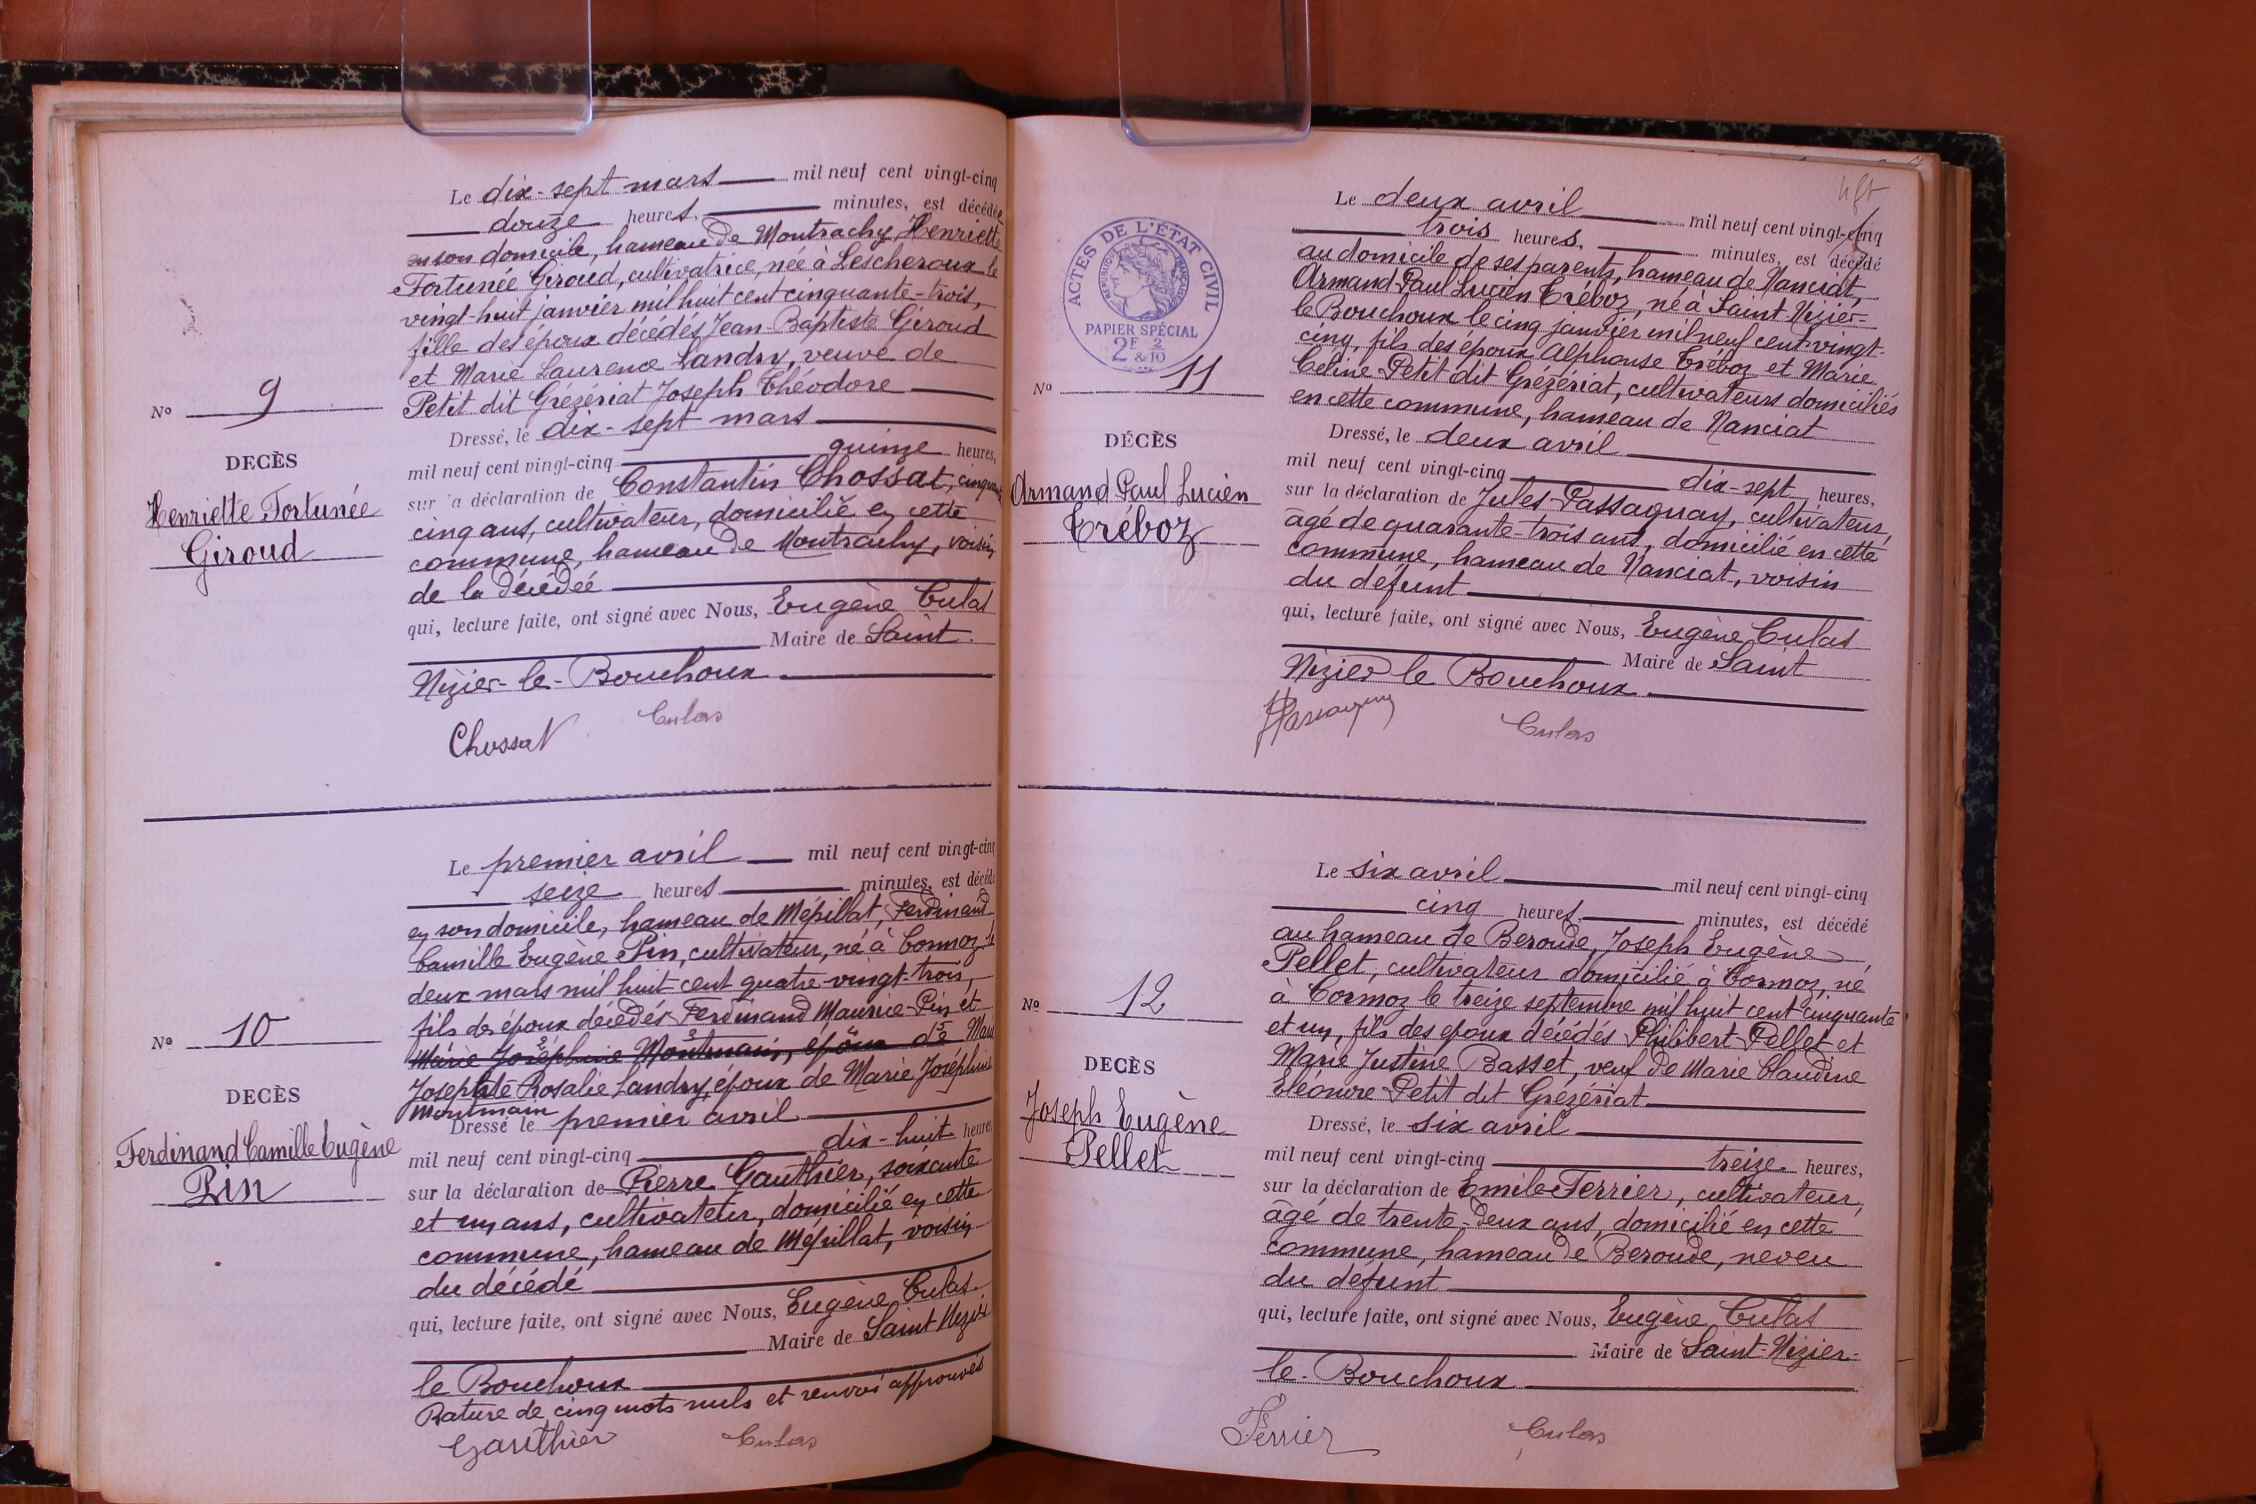 Le dix-sept mars mil neuf cent vingt-cinq
douze heures. minutes, est décédée
en son domicile, hameau de Montrachy, Henriette
Fortunée Giroud, cultivatrice, née à Lescheroux le
vingt-huit janvier mil huit cent cinquante-trois,
fille des époux décédés Jean-Baptiste Giroud
et Marie Laurence Landry, veuve de
Petit dit Grézériat Joseph Théodore
No 9
Dressé, le dix-sept mars
mil neuf cent vingt-cinq quinze heures,
DECÈS
sur la déclaration de Constantin Chossat, cinquante
Henriette Fortunée
Giroud
cinq ans, cultivateur, domicilié en cette
commune, hameau de Montrachy, voisin
de la décédée
qui, lecture faite, ont signé avec Nous, Eugène Culas
Maire de Saint-
Nizier-le-Bouchoux
Chossat Culas
Le premier avril mil neuf cent vingt-cinq
seize heures minutes, est décédé
en son domicile, hameau de Mépillat, Ferdinand
Camille Eugène Pin, cultivateur, né à Cormoz le
deux mars mil huit cent quatre-vingt-trois,
fils des époux décédés Ferdinand Maurice Pin et
Marie Joséphine Montmain, époux de Marie
Josephte Rosalie Landry, époux de Marie Joséphine
Montmain
No 10
Dressé le premier avril
mil neuf cent vingt-cinq dix-huit heures
DECÈS
Ferdinand Camille Eugène
Pin
sur la déclaration de Pierre Gauthier, soixante
et un ans, cultivateur, domicilié en cette
commune, hameau de Mépillat, voisin
du décédé
qui, lecture faite, ont signé avec Nous, Eugène Culas
Maire de Saint Nizier
le Bouchoux
Rature de cinq mots nuls et renvoi approuvés
Gauthier Culas
ACTES DE L'ÉTAT CIVIL
PAPIER SPÉCIAL
2F 2
& 10
Le deux avril mil neuf cent vingt-cinq
trois heures. minutes, est décédé
au domicile de ses parents, hameau de Nanciat,
Armand Paul Lucien Tréboz, né à Saint-Nizier-
le Bouchoux le cinq janvier mil neuf cent vingt-
cinq, fils des époux Alphonse Tréboz et Marie
Céline Petit dit Grézériat, cultivateurs domiciliés
en cette commune, hameau de Nanciat
No 11
Dressé, le deux avril
mil neuf cent vingt-cinq dix-sept heures,
DÉCÈS
Armand Paul Lucien
Tréboz
sur la déclaration de Jules Passaquay, cultivateur,
âgé de quarante-trois ans, domicilié en cette
commune, hameau de Nanciat, voisin
du défunt
qui, lecture faite, ont signé avec Nous, Eugène Culas
Maire de Saint
Nizier le Bouchoux
Culas
Le six avril mil neuf cent vingt-cinq
cinq heures. minutes, est décédé
au hameau de Beroude, Joseph Eugène
Pellet, cultivateur domicilié à Cormoz, né
à Cormoz le treize septembre mil huit cent cinquante
et un, fils des époux décédés Philibert Pellet et
Marie Justine Basset, veuf de Marie Claudine
Eléonore Petit dit Grézériat
No 12
Dressé, le six avril
mil neuf cent vingt-cinq treize heures,
DECÈS
Joseph Eugène
Pellet
sur la déclaration de Emile Ferrier, cultivateur,
âgé de trente-deux ans, domicilié en cette
commune, hameau de Beroude, neveu
du défunt
qui, lecture faite, ont signé avec Nous, Eugène Culas
Maire de Saint-Nizier-
le-Bouchoux
Ferrier Culas